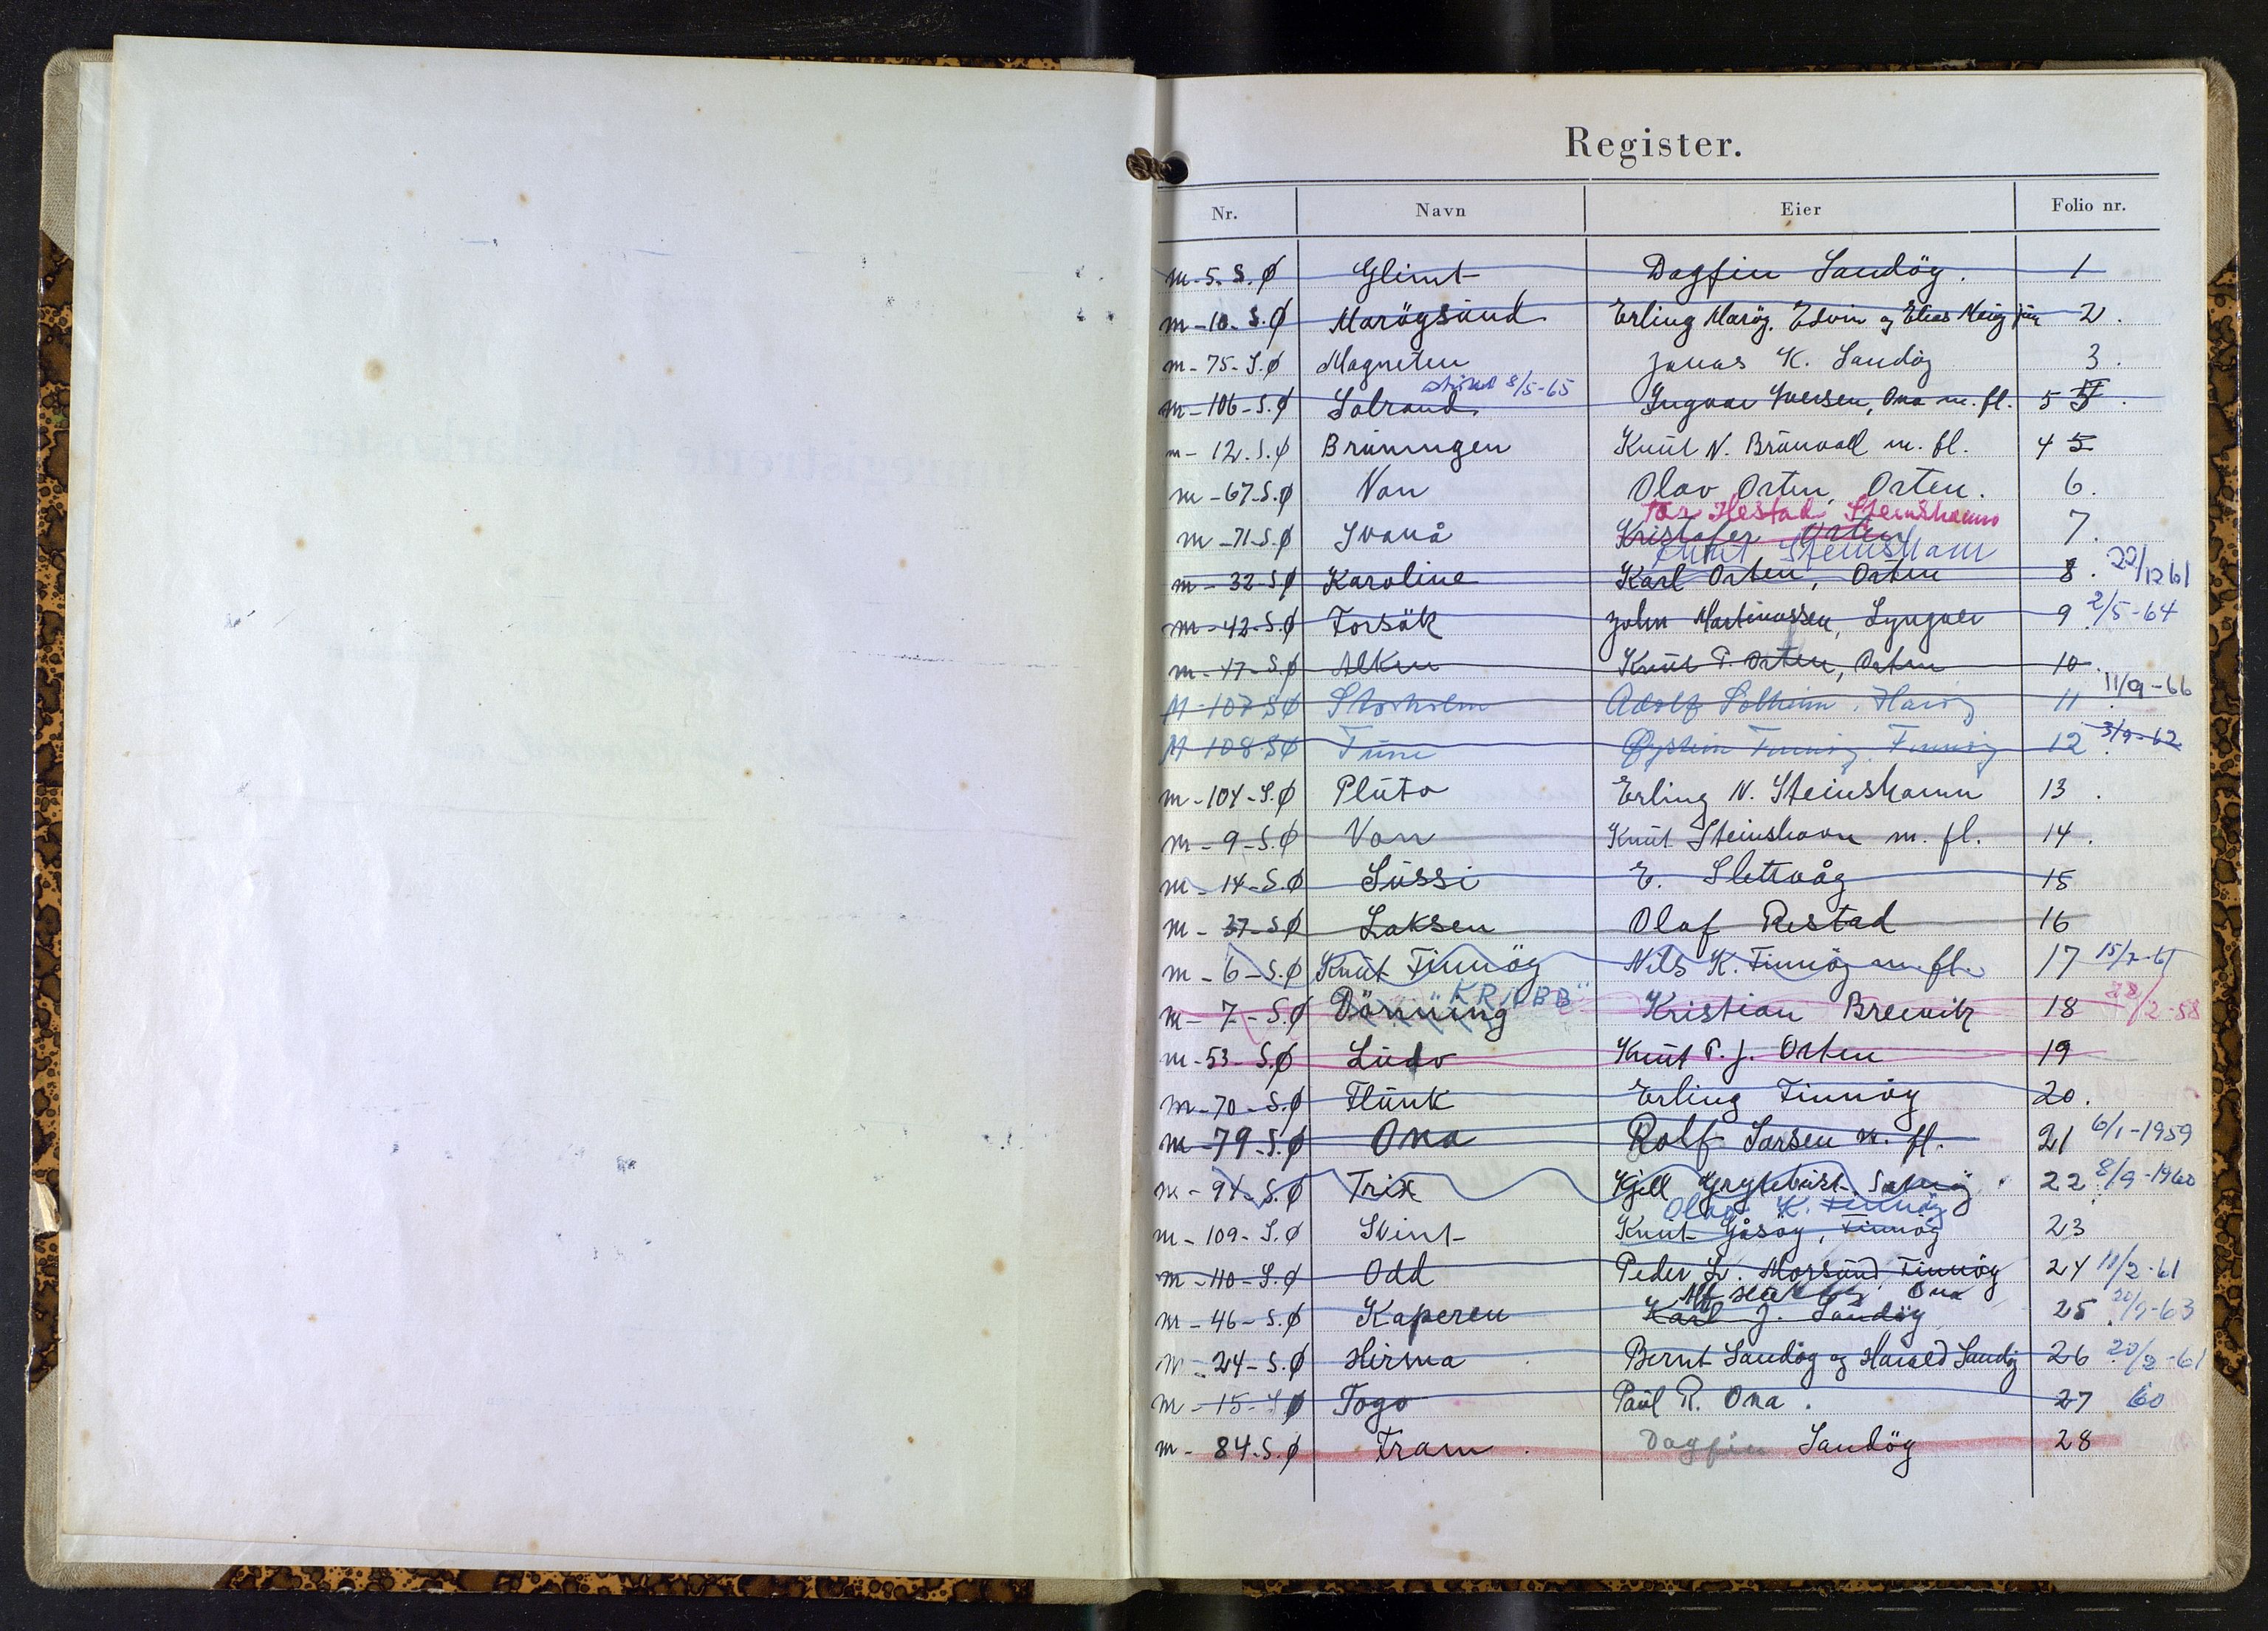 Register.
Nr. Navn Eier Folio nr.
m-5.S.Ø Glimt Dagfin Sandöy. 1
m-10-S.Ø Maröysund Erling Maröy, Edvin og Elias 2.
m-75-S.Ø Magneten Jonas K. Sandöy 3.
8/5-65
m-106-S.Ø Solrand Ingvar Iversen, Ona m. fl. 5
m-12.S.Ø Bruningen Knut N. m. fl. 4 5
m-67-S.Ø Von Olav Orten, Orten. 6.
Tor Hestad Steinshamn
m-71-S.Ø Svanå Kristofer Orten 7.
Knut Steinshamn
m-32-S.Ø Karoline Karl Orten, Orten 8. 22/12 61
m-42-S.Ø Forsök John Martinussen, Lyngver 9 2/5-64
m-47-S.Ø Alken Knut P. Orten, Orten 10.
M-107-SØ Storholm Adolf Solheim, Haröy 11 11/9-66
M-108-SØ Tune Øystein Finnöy, Finnöy 12 3/9-62
m-104-S.Ø Pluto Erling N. Steinshamn 13.
m-9-S.Ø Von Knut Steinshavn m. fl. 14.
m-14-S.Ø Sussi E. Slettvåg 15
m-37-S.Ø Laksen Olaf Restad 16
m-6-S.Ø Knut Finnöy Nils K. Finnöy m. fl. 17
"KRABB"
m-7-S.Ø Dönning Kristian Brevik 18 28/2-58
m-53-S.Ø Ludo Knut P. J. Orten 19
m-70-S.Ø Flunk Erling Finnöy 20.
m-79-S.Ø Ona Rolf Larsen m. fl. 21 6/1-1959
m-94-S.Ø Trix Kjell 22 8/9-1960
Olav K. Finnöy
m-109-S.Ø Svint Knut Gåsöy, Finnöy 23
m-110-S.Ø Odd Peder L. Morsund Finnöy 24 11/2-61
Ona
m-46-S.Ø Kaperen Karl J. Sandöy 25 -63
m-24-S.Ø Hirma Bernt Sandöy og Harald Sandöy 26 20/2-61
m-15-S.Ø Togo Paul R. Ona. 27 60
m-84.S.Ø Fram. Dagfin Sandöy 28